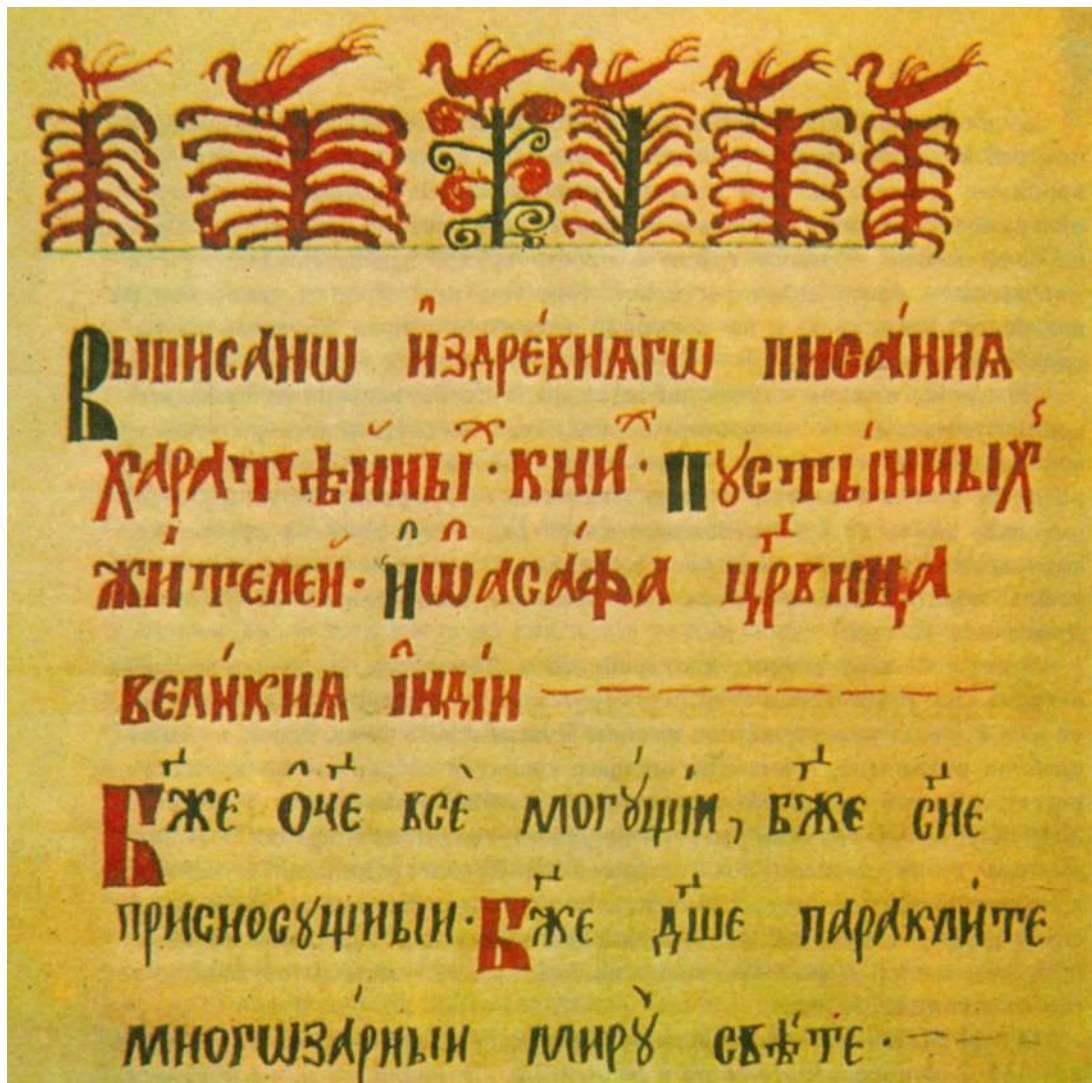 Выписанѡ и҆здре́внѧгѡ писа́ниѧ
харатѣйныⷯ · книⷯ · пꙋсты́нныхъ
жи́телей · И҆ѡ҆аса́фа цр҃вица
вели́киѧ і҆нді́и
Бж҃е ѻ҆ч҃е всѐ могꙋ́щіи, бж҃е сн҃е
присносꙋщныи · Бж҃е дш҃е паракли́те
многѡза́рныи мирꙋ̀ свѣ́те ·